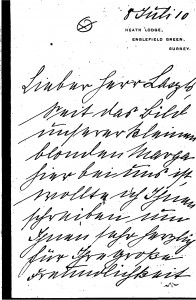 8 Juli 10
HEATH LODGE,
ENGLEFIELD GREEN,
SURREY.
Lieber Herr László
Seit das Bild
unserer kleinen
blonden
hier bei uns ist
wollte ich Ihnen
schreiben um
Ihnen sehr herzlich
für Ihre große
Freundlichkeit